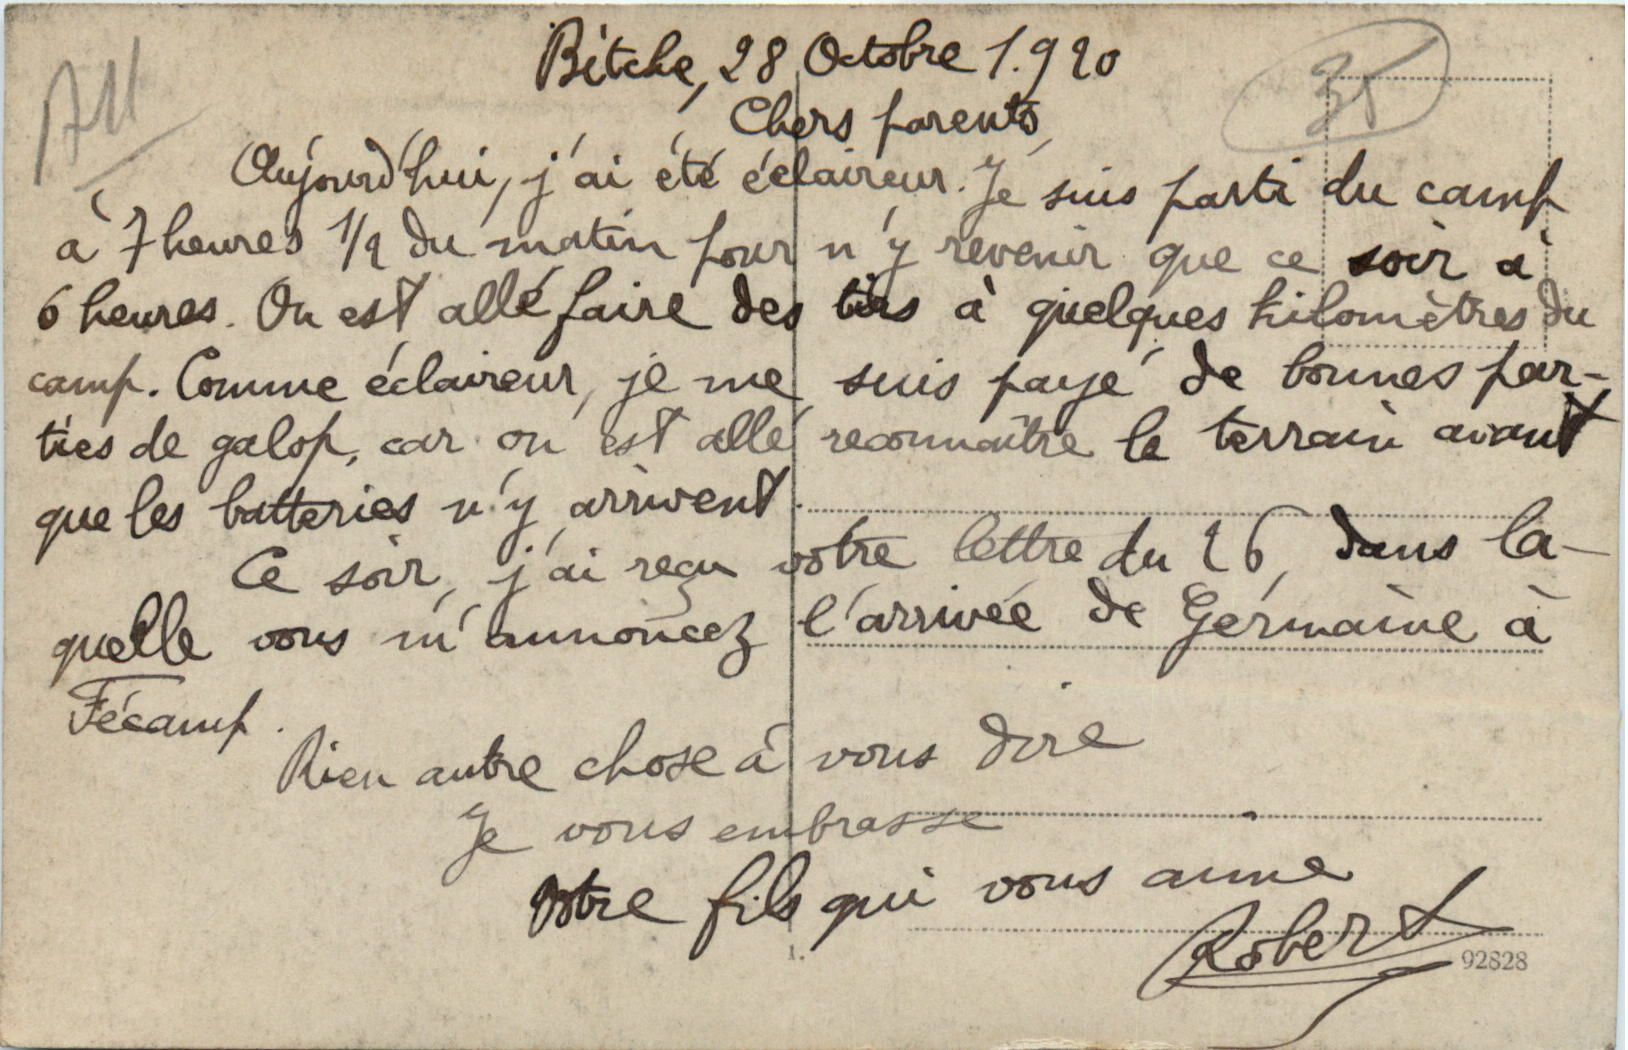 Bitche, 28 Octobre 1.920
35
Chers parents,
Aujourd'hui, j'ai été éclaireur. Je suis parti du camp
à 7 heures 1/2 du matin pour n'y revenir que ce soir à
6 heures. On est allé faire des tirs à quelques kilomètres du
camp. Comme éclaireur, je me suis payé de bonnes par-
ties de galop, car on est allé reconnaître le terrain avant
que les batteries n'y arrivent.
Ce soir, j'ai reçu votre lettre du 26, dans la-
quelle vous m'annoncez l'arrivée de Germaine à
Fécamp.
Rien autre chose à vous dire
Je vous embrasse
Votre fils qui vous aime
Robert
92828